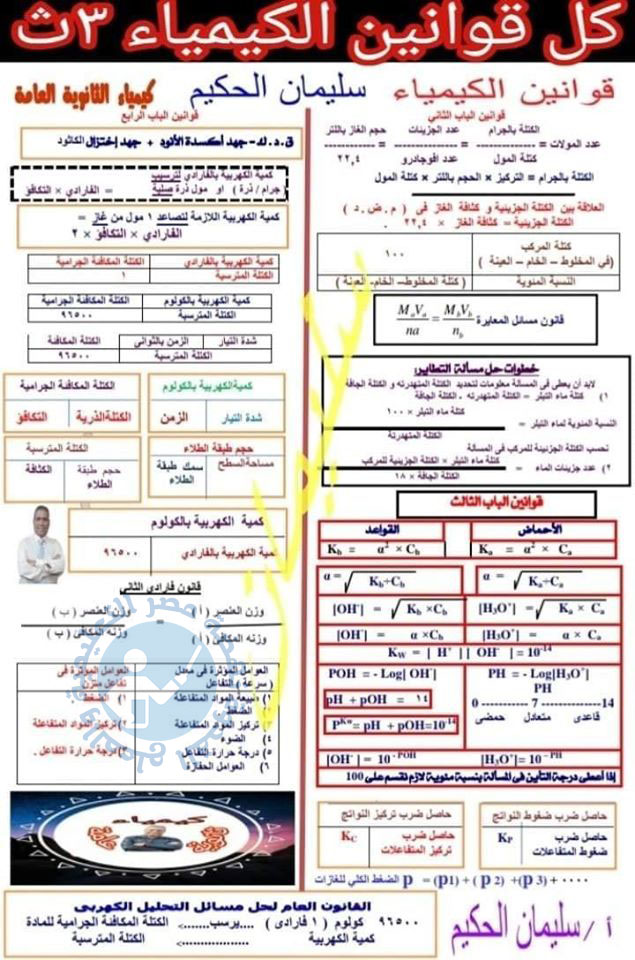 كل قوانين الكيمياء ٣ث
قوانين الكيمياء سليمان الحكيم كيمياء الثانوية العامة
قوانين الباب الثاني
الكتلة بالجرام عدد الجزيئات حجم الغاز باللتر
عدد المولات = ------------- = ------------- = -------------
كتلة المول عدد افوجادرو ٢٢,٤
الكتلة بالجرام = التركيز × الحجم باللتر × كتلة المول
العلاقة بين الكتلة الجزيئية و كثافة الغاز في ( م . ض . د )
الكتلة الجزيئية = كثافة الغاز × ٢٢,٤ .
كتلة المركب ١٠٠
(في المخلوط - الخام - العينة )
النسبة المئوية ( كتلة المخلوط- الخام- العينة )
قانون مسائل المعايرة MaVa/na = MbVb/nb
خطوات حل مسألة التطاير:
لابد أن يعطى في المسألة معلومات لتحديد الكتلة المتهدرته و الكتلة الجافة
١) كتلة ماء التبلر = الكتلة المتهدرته . الكتلة الجافة
كتلة ماء التبلر × ١٠٠
النسبة المئوية لماء التبلر = ------------
الكتلة المتهدرتة
نحسب الكتلة الجزيئية للمركب في المسألة
كتلة ماء التبلر × الكتلة الجزيئية للمركب
٢) عدد جزيئات الماء = ------------
الكتلة الجافة × ١٨
قوانين الباب الثالث
الأحماض القواعد
Ka = α² × Ca Kb = α² × Cb
α = √Ka÷Ca α = √Kb÷Cb
[H₃O⁺] = √Ka × Ca [OH⁻] = √Kb ×Cb
[H₃O⁺] = α × Ca [OH⁻] = α ×Cb
KW = | H⁺ | | OH⁻ | = 10⁻¹⁴
PH = - Log[H₃O⁺] POH = - Log[ OH⁻]
PH
0 ----------- 7 --------------14
حمضى متعادل قاعدى
pH + pOH = ١٤
Pᴷʷ= pH + pOH=10⁻¹⁴
[H₃O⁺]= 10 ⁻ᴾᴴ [OH⁻] = 10 ⁻ᴾᴼᴴ
إذا أعطى درجة التأين في المسألة بنسبة مئوية لازم نقسم على 100
حاصل ضرب ضغوط النواتج حاصل ضرب تركيز النواتج
KP حاصل ضرب ضغوط المتفاعلات KC حاصل ضرب تركيز المتفاعلات
الضغط الكلي للغازات p = (p1) + ( p 2) +(p 3) + ٠٠٠٠
أ / سليمان الحكيم
قوانين الباب الرابع
ق.د.ك= جهد أكسدة الأنود + جهد إختزال الكاثود
كمية الكهربية بالفارادي لترسيب
( جرام / ذرة ) او مول ذرة صلبة = الفارادي × التكافؤ
كمية الكهربية اللازمة لتصاعد ١ مول من غاز =
الفارادي × التكافؤ × ٢
كمية الكهربية بالفارادي الكتلة المكافئة الجرامية
الكتلة المترسبة ١
كمية الكهربية بالكولوم الكتلة المكافئة الجرامية
الكتلة المترسبة ٩٦٥٠٠
شدة التيار الزمن بالثواني الكتلة المكافئة
الكتلة المترسبة ٩٦٥٠٠
كمية الكهربية بالكولوم
شدة التيار الزمن
الكتلة المكافئة الجرامية
الكتلة الذرية التكافؤ
حجم طبقة الطلاء
مساحة السطح سمك طبقة الطلاء
الكتلة المترسبة
حجم طبقة الطلاء الكثافة
كمية الكهربية بالكولوم
كمية الكهربية بالفارادي ٩٦٥٠٠
قانون فارادى الثانى
وزن العنصر ( أ ) وزن العنصر ( ب )
------------ = ------------
وزنه المكافى ( أ ) وزنه المكافى ( ب )
العوامل المؤثرة في معدل ( سرعة ) التفاعل
١) طبيعة المواد المتفاعلة
٢) الضغط
٣) تركيز المواد المتفاعلة
٤) الضوء
٥) درجة حرارة التفاعل
٦) العوامل الحفازة
العوامل المؤثرة في تفاعل متزن
١) الضغط
٢) تركيز المواد المتفاعلة
٣) درجة حرارة التفاعل .
كيمياء
القانون العام لحل مسائل التحليل الكهربى
٩٦٥٠٠ كولوم ( ١ فارادى ) ....يرسب......> الكتلة المكافئة الجرامية للمادة
كمية الكهربية ..................> الكتلة المترسبة